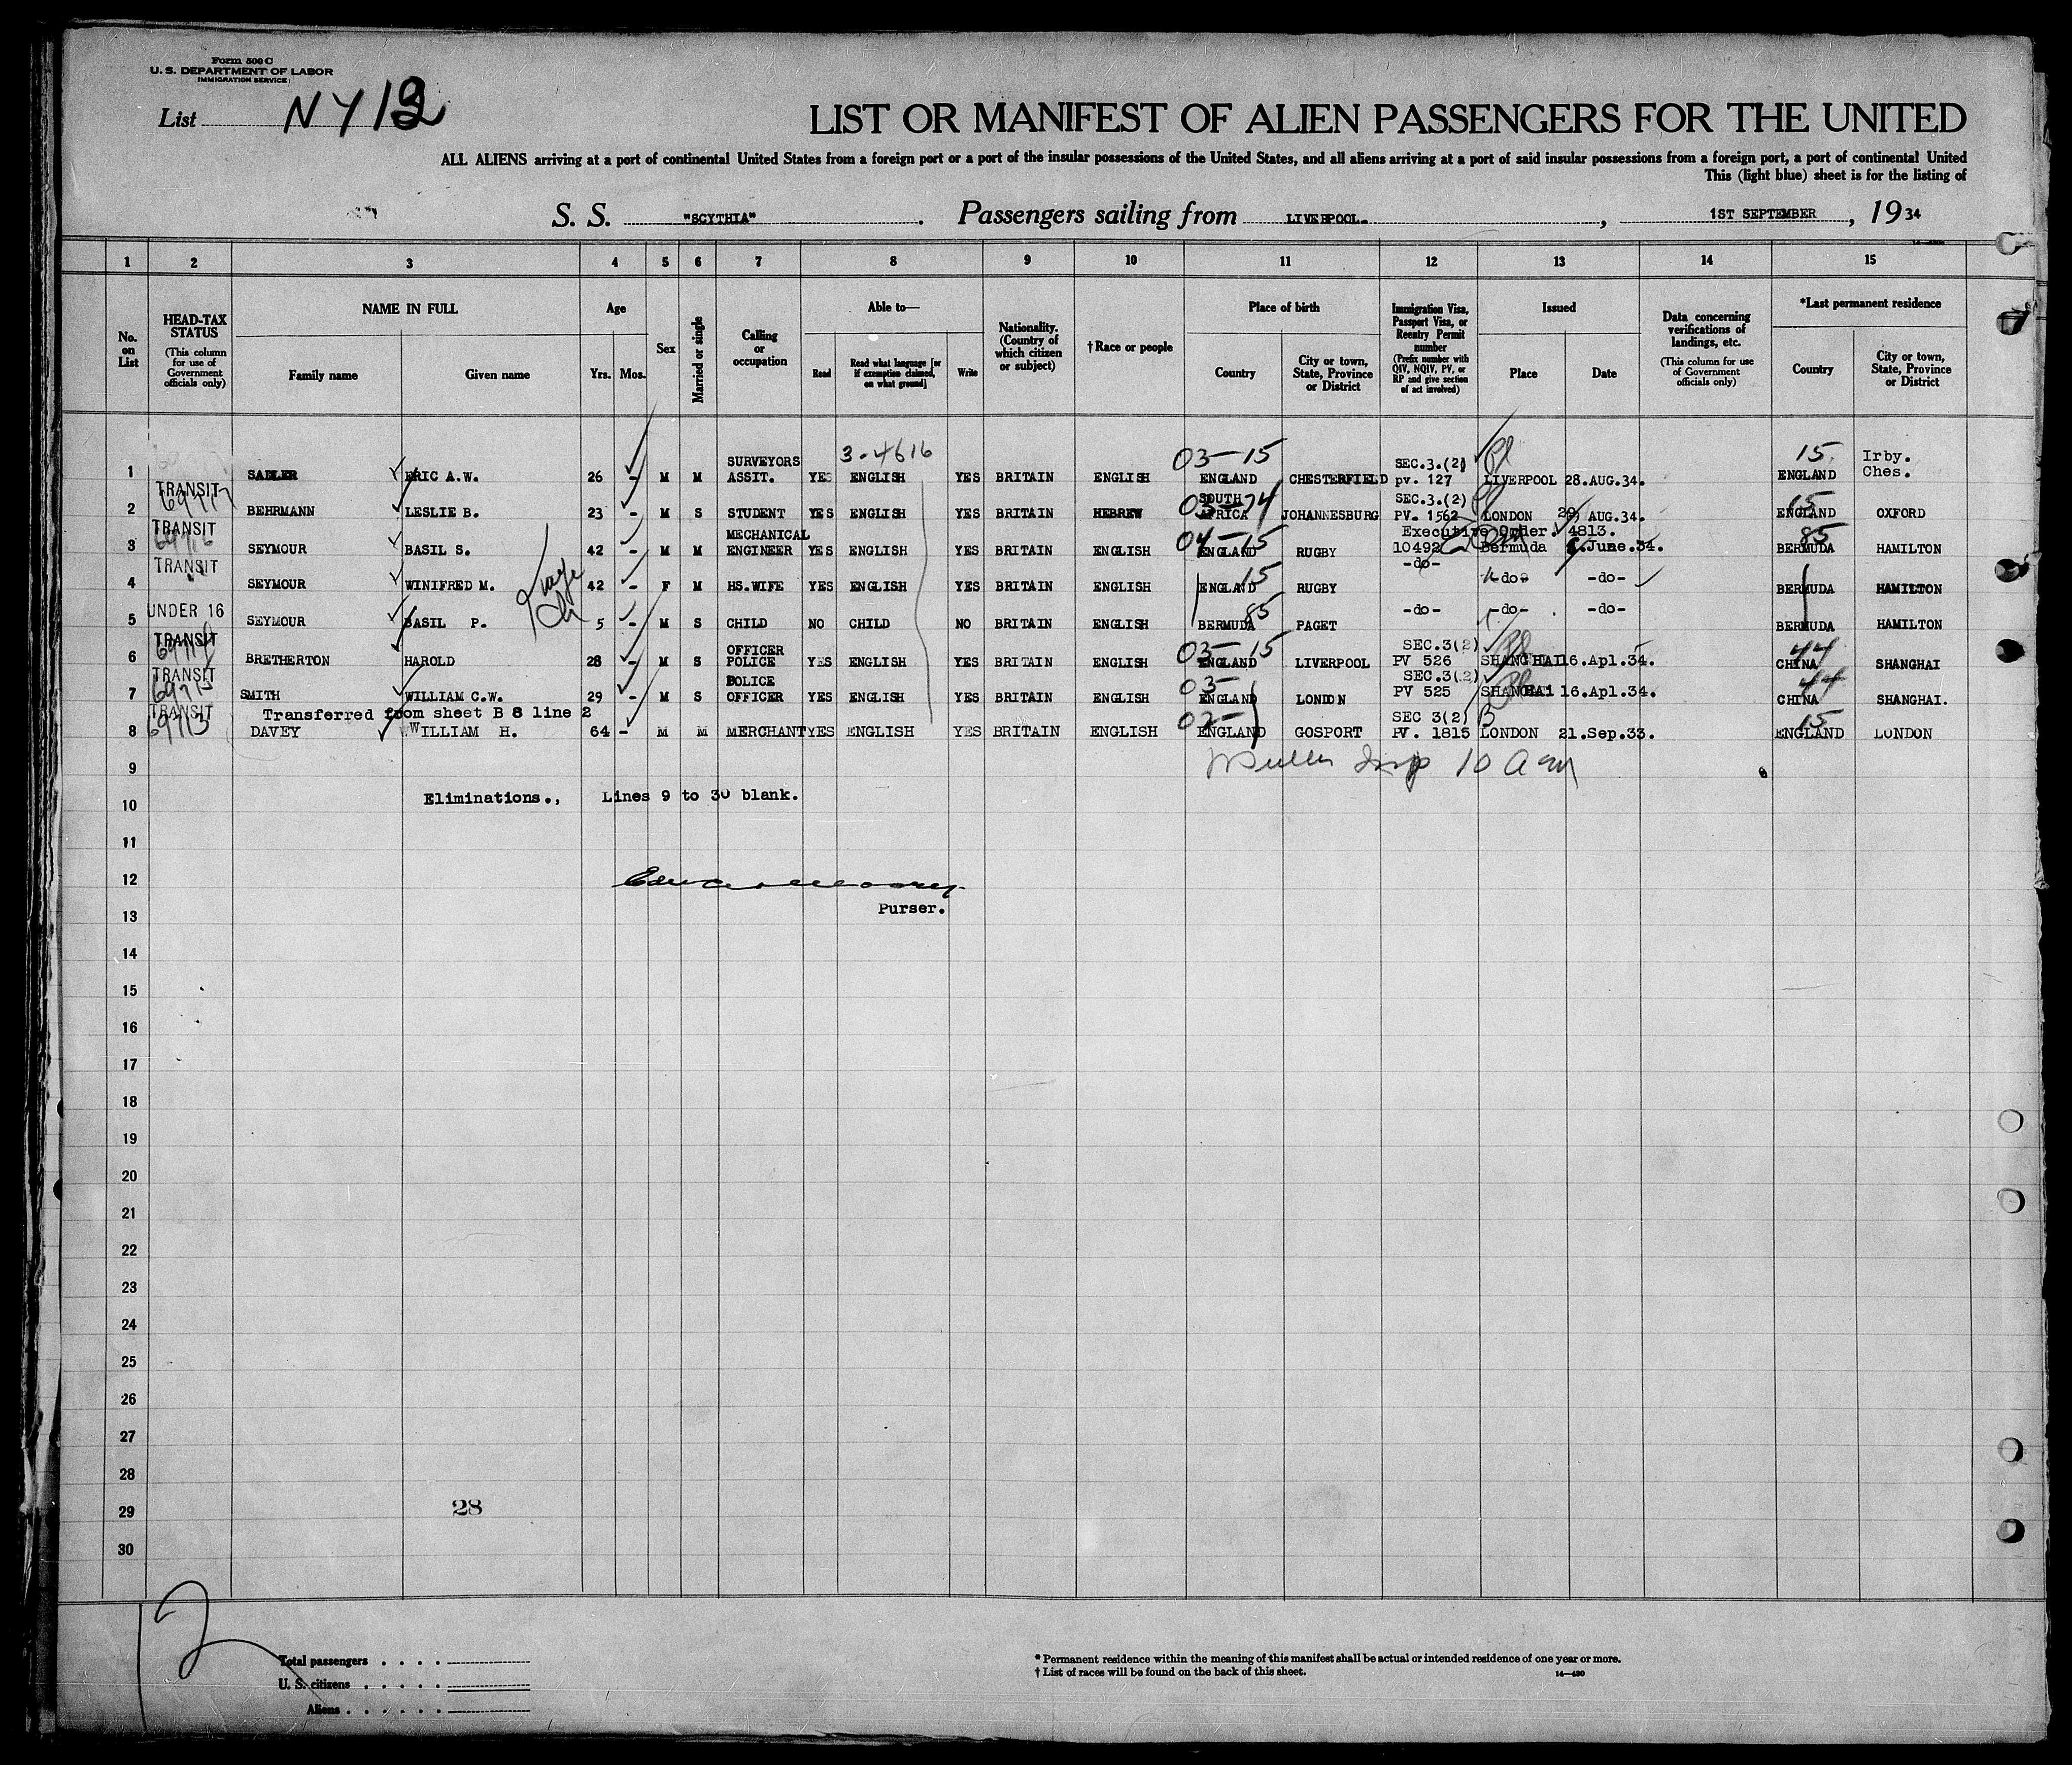 Form 500 C
U. S. DEPARTMENT OF LABOR
IMMIGRATION SERVICE
List NY 12
LIST OR MANIFEST OF ALIEN PASSENGERS FOR THE UNITED
ALL ALIENS arriving at a port of continental United States from a foreign port or a port of the insular possessions of the United States, and all aliens arriving at a port of said insular possessions from a foreign port, a port of continental United
This (light blue) sheet is for the listing of
S. S. "SCYTHIA". Passengers sailing from LIVERPOOL., 1ST SEPTEMBER, 1934
1 2 3 4 5 6 7 8 9 10 11 12 13 14 15
No. on List
HEAD-TAX STATUS (This column for use of Government officials only)
NAME IN FULL Family name Given name
Age Yrs. Mos.
Sex
Married or single
Calling or occupation
Able to— Read Read what language [or if exemption claimed, on what ground] Write
Nationality. (Country of which citizen or subject)
†Race or people
Place of birth Country City or town, State, Province or District
Immigration Visa, Passport Visa, or Reentry Permit number (Prefix number with QIV, NQIV, PV, or RP and give section of act involved)
Issued Place Date
Data concerning verifications of landings, etc. (This column for use of Government officials only)
*Last permanent residence Country City or town, State, Province or District
3-4616 03-15 15
1 SADLER ERIC A.W. 26 - M M SURVEYORS ASSIT. YES ENGLISH YES BRITAIN ENGLISH ENGLAND CHESTERFIELD SEC.3.(2) pv. 127 LIVERPOOL 28.AUG.34. ENGLAND Irby. Ches.
TRANSIT 03-74 15
2 BEHRMANN LESLIE B. 23 - M S STUDENT YES ENGLISH YES BRITAIN HEBREW SOUTH AFRICA JOHANNESBURG SEC.3.(2) PV. 1562 LONDON 29, AUG.34. ENGLAND OXFORD
TRANSIT 04-15 85
3 SEYMOUR BASIL S. 42 - M M MECHANICAL ENGINEER YES ENGLISH YES BRITAIN ENGLISH ENGLAND RUGBY Executive Order. 4813. 10492 Bermuda June.34. BERMUDA HAMILTON
TRANSIT 15
4 SEYMOUR WINIFRED M. 42 - F M HS.WIFE YES ENGLISH YES BRITAIN ENGLISH ENGLAND RUGBY -do- -do- -do- BERMUDA HAMILTON
UNDER 16 85
5 SEYMOUR BASIL P. 5 - M S CHILD NO CHILD NO BRITAIN ENGLISH BERMUDA PAGET -do- -do- -do- BERMUDA HAMILTON
TRANSIT 03-15 44
6 BRETHERTON HAROLD 28 - M S OFFICER POLICE YES ENGLISH YES BRITAIN ENGLISH ENGLAND LIVERPOOL SEC.3(2) PV 526 SHANGHAI 16.Apl.34. CHINA SHANGHAI
TRANSIT 69715 03- 44
7 SMITH WILLIAM C.W. 29 - M S POLICE OFFICER YES ENGLISH YES BRITAIN ENGLISH ENGLAND LONDON SEC.3(2) PV 525 SHANGHAI 16.Apl.34. CHINA SHANGHAI.
TRANSIT 69713 Transferred from sheet B 8 line 2 02- 15
8 DAVEY WILLIAM H. 64 - M M MERCHANT YES ENGLISH YES BRITAIN ENGLISH ENGLAND GOSPORT SEC 3(2) PV. 1815 LONDON 21.Sep.33. ENGLAND LONDON
9 10 am
10 Eliminations., Lines 9 to 30 blank.
11
12
13 Purser.
14
15
16
17
18
19
20
21
22
23
24
25
26
27
28
29 28
30
12
Total passengers
U. S. citizens
Aliens
* Permanent residence within the meaning of this manifest shall be actual or intended residence of one year or more.
† List of races will be found on the back of this sheet. 14—430